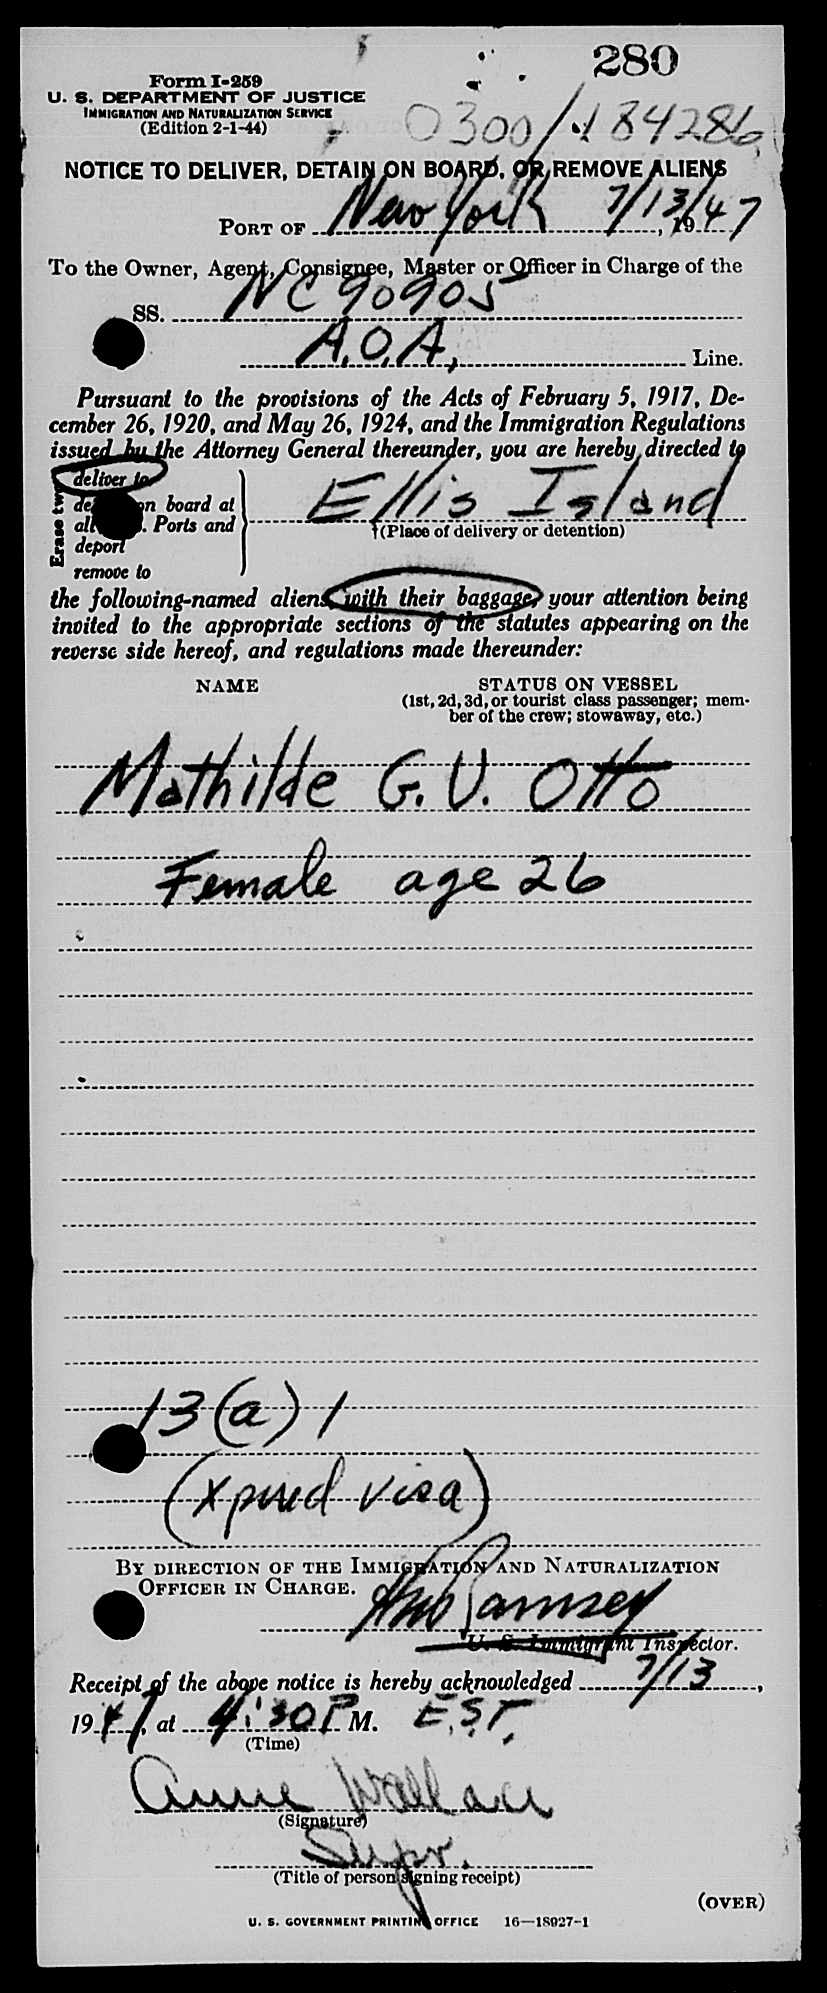 280
Form I-259
U. S. DEPARTMENT OF JUSTICE
IMMIGRATION AND NATURALIZATION SERVICE
(Edition 2-1-44)
0300/184286
NOTICE TO DELIVER, DETAIN ON BOARD, OR REMOVE ALIENS
PORT OF New York 7/13/47, 19
To the Owner, Agent, Consignee, Master or Officer in Charge of the
SS. NC90905
A.O.A. Line.
Pursuant to the provisions of the Acts of February 5, 1917, De-
cember 26, 1920, and May 26, 1924, and the Immigration Regulations
issued by the Attorney General thereunder, you are hereby directed to
Erase two
deliver to
on board at
Ports and
deport
remove to
Ellis Island
(Place of delivery or detention)
the following-named aliens, with their baggage, your attention being
invited to the appropriate sections of the statutes appearing on the
reverse side hereof, and regulations made thereunder:
NAME STATUS ON VESSEL
(1st, 2d, 3d, or tourist class passenger; mem-
ber of the crew; stowaway, etc.)
Mathilde G. V. Otto
Female age 26
13(a)1
(Xpired visa)
BY DIRECTION OF THE IMMIGRATION AND NATURALIZATION
OFFICER IN CHARGE.
Ramsey
U. S. Immigrant Inspector.
Receipt of the above notice is hereby acknowledged 7/13,
1947, at 4:30 P M. E.S.T.
(Time)
Anne Wallace
(Signature)
Supr.
(Title of person signing receipt)
(OVER)
U. S. GOVERNMENT PRINTING OFFICE 16—18927-1